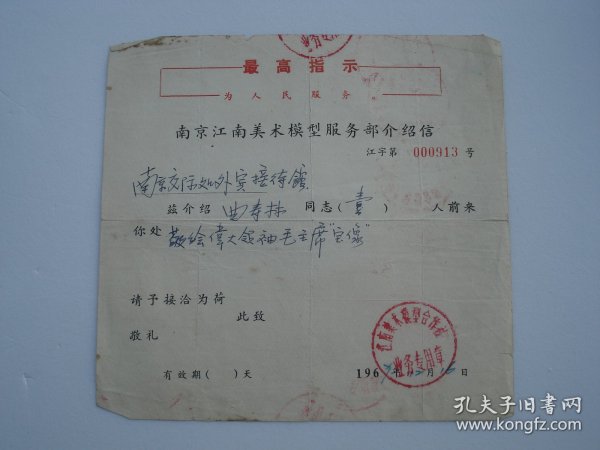 业务专用章
最高指示
为人民服务
南京江南美术模型服务部介绍信
江字第 000913 号
南京交际处外宾接待馆
兹介绍 曲 同志(壹) 人前来
你处 敬绘伟大领袖毛主席“宝像”
请予接洽为荷
此致
敬礼
江南美术模型合作社
业务专用章
有效期( )天
196 年 月 日
孔夫子旧书网
www.kongfz.com